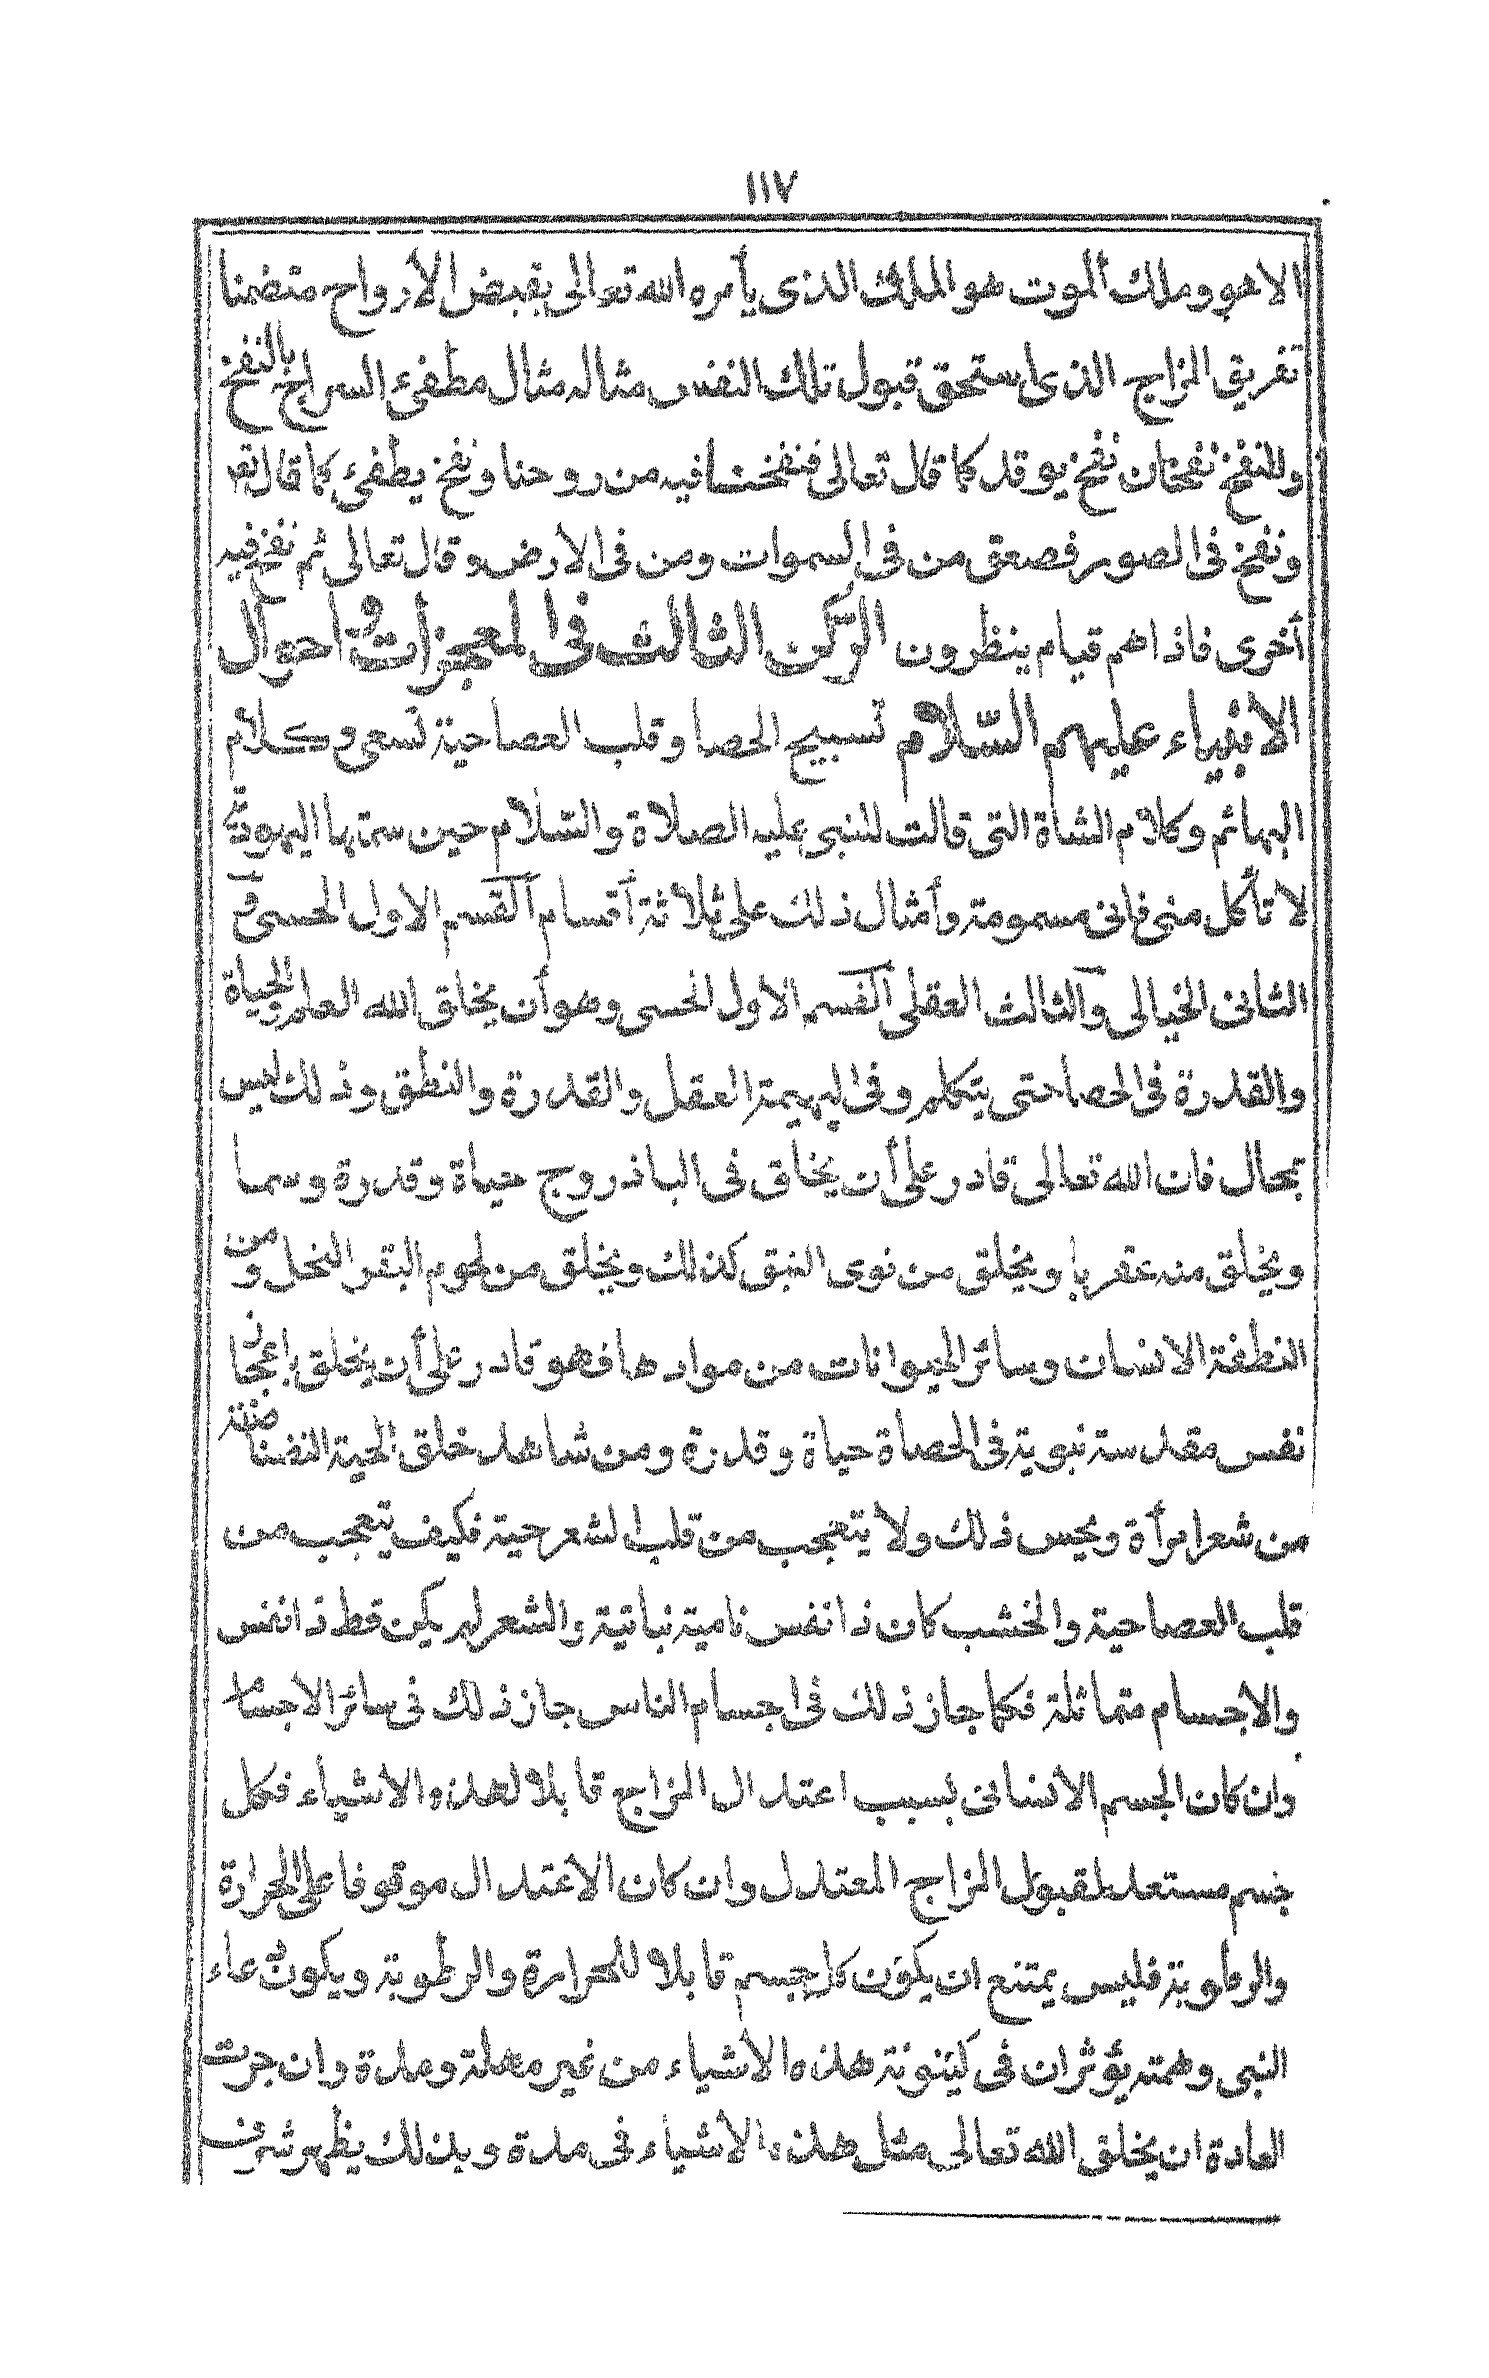 ١١٧
الا هو وملك ألموت هو الملك الذى يأمره الله تعالى بقبض الأرواح متضمنا
تفريق المزاج الذى استحق قبول تلك النفس مثاله مثال مطفئ السراج بالنفخ
وللنفخ نفختان نفخ يوقد كما قال تعالى فنفخنا فيه من روحنا ونفخ يطفئ كما قال تعـ
ونفخ فى الصور فصعق من فى السموات ومن فى الارض وقال تعالى ثم نفخ فيه
أخرى فاذا هم قيام ينظرون الركن الثالث فى المعجزات واحوال
الانبياء عليهم السّلام تسبيح الحصا وقلب العصا حية تسعى وكلام
البهائم وكلام الشاة التى قالت للنبى عليه الصلاة والسّلام حين سمتها اليهودية
لا تأكل منى فإنى مسمومة وأمثال ذلك على ثلاثة أقسام القسم الاول الحسى و
الثانى الخيالى والثالث العقلى القسم الاول الحسى وهو أن يخلق الله العلم والحياة
والقدرة فى الحصا حتى يتكلم وفى البهيمة العقل والقدرة والنطق وذلك ليس
بمحال فان الله تعالى قادر على أن يخلق فى الباذروج حياة وقدرة وسما
ويخلق منه عقربا ويخلق من نوى النبق كذلك ويخلق من لحوم البقر النحل ومن
النطفة الانسان وسائر الحيوانات من موادها فهو قادر على أن يخلق بإعجا
نفس مقدسة نبوية فى الحصاة حياة وقدرة ومن شاهد خلق الحية النضناضة
من شعر امرأة ويحس ذلك ولا يتعجب من قلب الشعر حية فكيف يتعجب من
قلب العصا حية والخشب كان ذا نفس نامية نباتية والشعر لم يكن قط ذا نفس
والأجسام متماثلة فكما جاز ذلك فى اجسام الناس جاز ذلك فى سائر الاجسام
وان كان الجسم الأنسانى بسبب اعتدال المزاج قابلا لهذه الأشياء فكل
جسم مستعد لقبول المزاج المعتدل وان كان الأعتدال موقوفا على الحرارة
والرطوبة فليس يمتنع ان يكون كل جسم قابلا للحرارة والرطوبة ويكون دعاء
النبى وهمته يؤثران فى كينونة هذه الأشياء من غير مهلة ومدة وان جرت
العادة ان يخلق الله تعالى مثل هذه الأشياء فى مدة وبذلك يظهر شرف